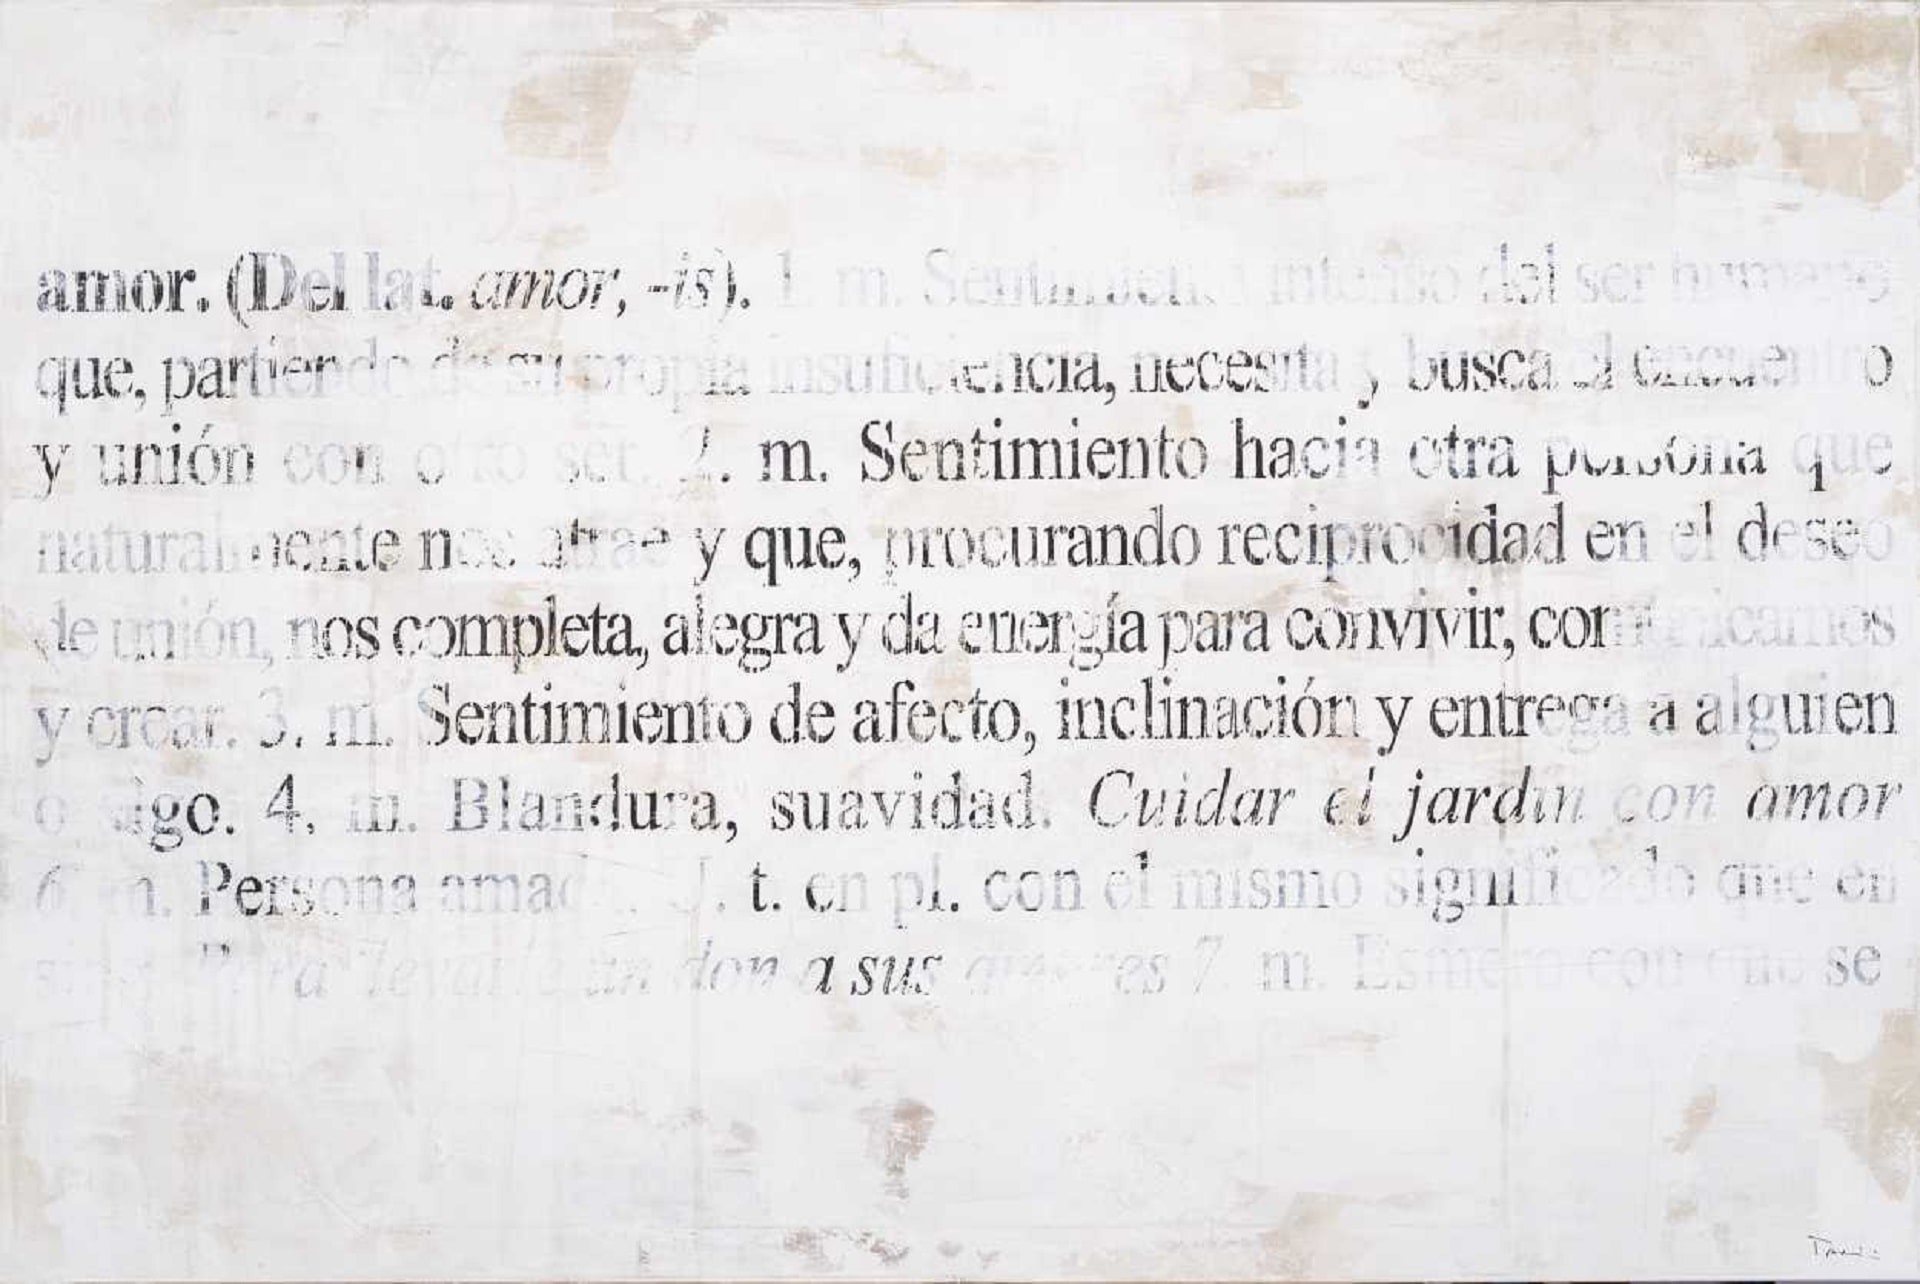 amor. (Del lat. amor, -is). 1. m. Sentimiento intenso del ser humano
que, partiendo de su propia insuficiencia, necesita y busca el encuentro
y unión con otro ser. 2. m. Sentimiento hacia otra persona que
naturalmente nos atrae y que, procurando reciprocidad en el deseo
de unión, nos completa, alegra y da energía para convivir, comunicarnos
y crear. 3. m. Sentimiento de afecto, inclinación y entrega a alguien
o algo. 4. m. Blandura, suavidad. Cuidar el jardín con amor
6. m. Persona amada. U. t. en pl. con el mismo significado que en
sing. Para llevarle un don a sus amores 7. m. Esmero con que se